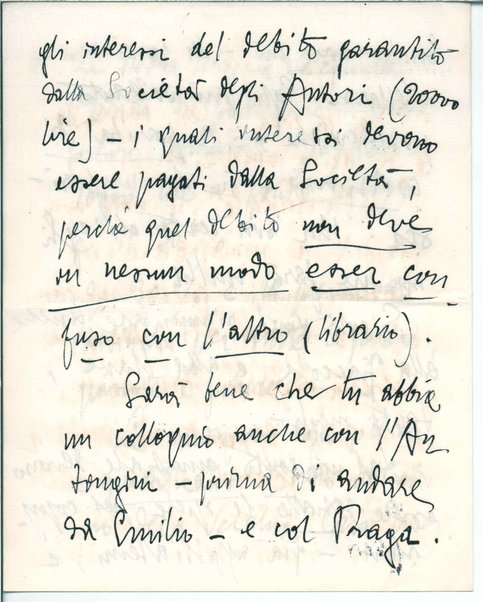 gli interessi del debito garantito
dalla Società degli Autori (20000
lire) – i quali interessi devono
essere pagati dalla Società,
perché quel debito non deve
in nessun modo esser con-
fuso con l'altro (librario).
Sarà bene che tu abbia
un colloquio anche con l'An
tongini – prima di andare
da Emilio – e col Praga.